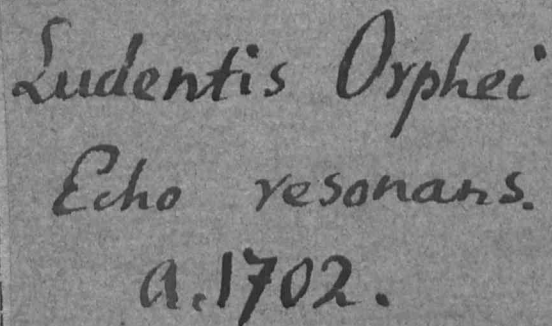 Ludentis Orphei
Echo resonans.
a. 1702.